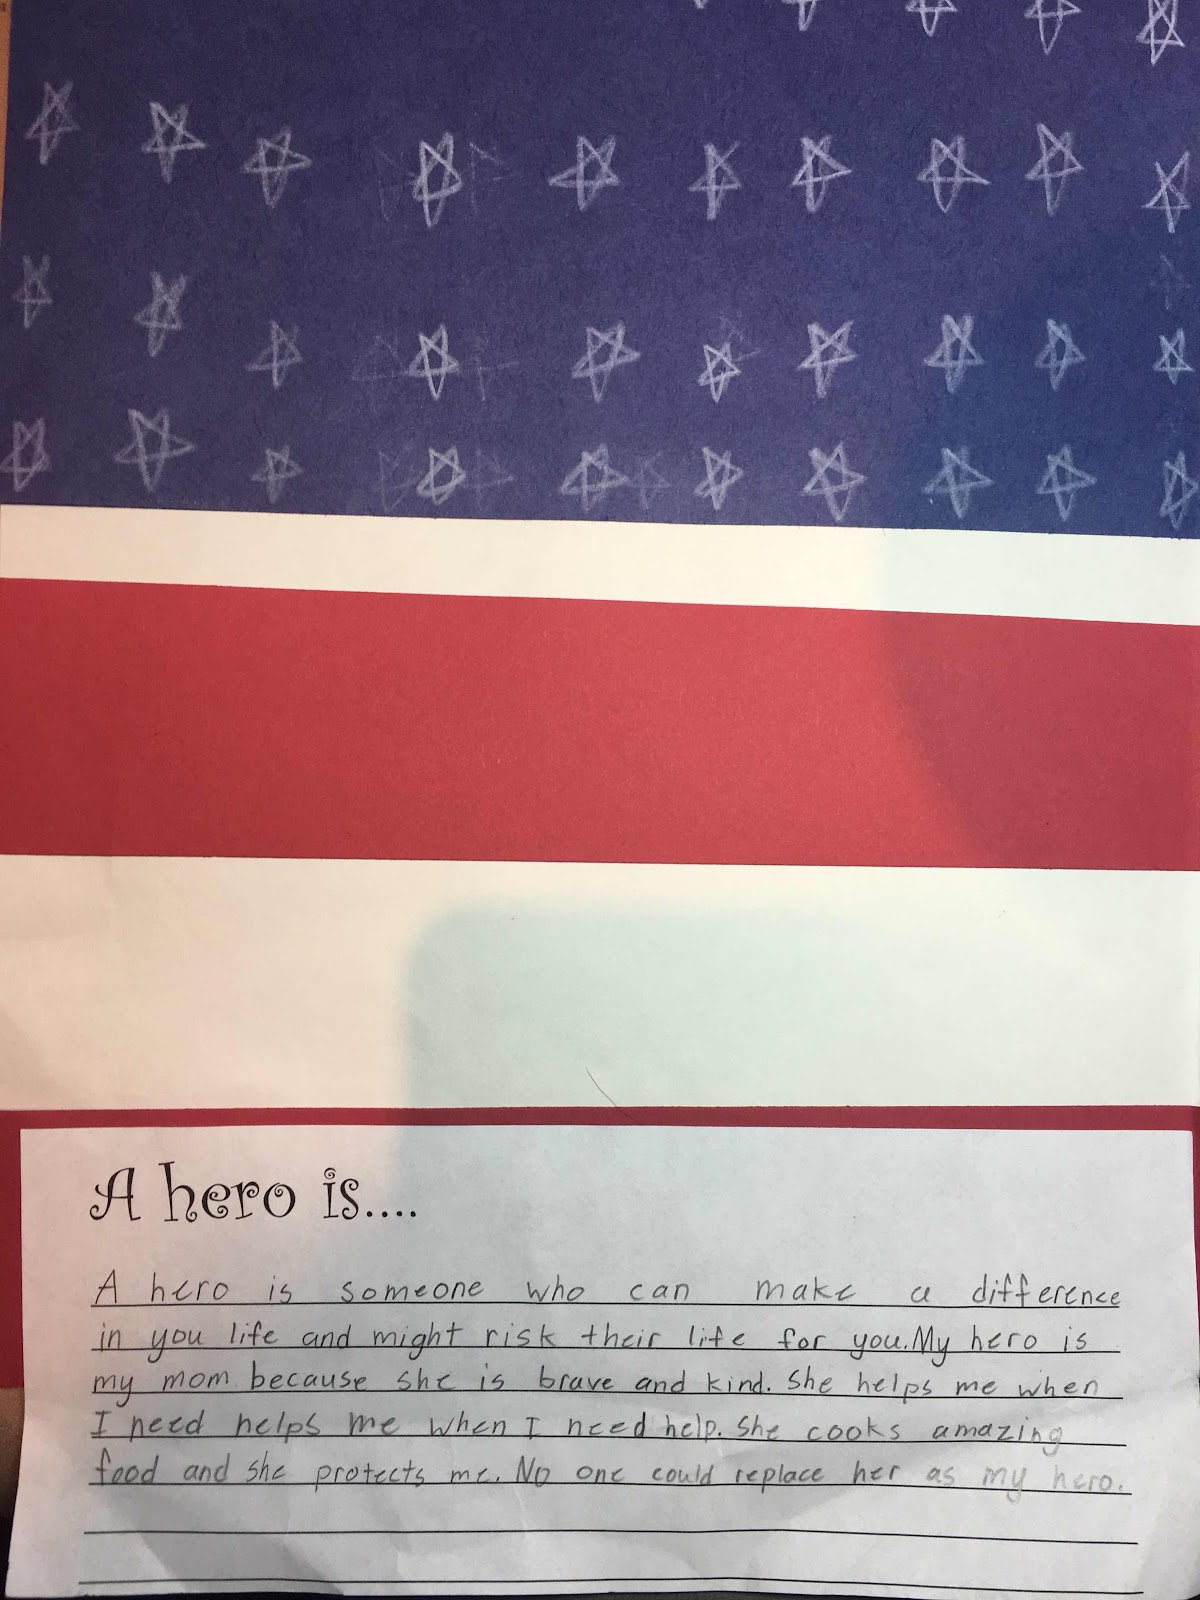 A hero is....
A hero is someone who can make a difference
in you life and might risk their life for you. My hero is
my mom because she is brave and kind. She helps me when
I need helps me when I need help. She cooks amazing
food and she protects me. No one could replace her as my hero.